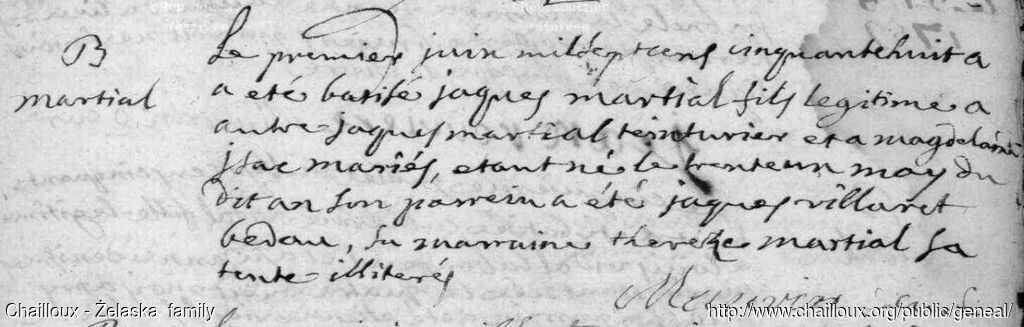 B
martial
Le premier juin mil sept cens cinquante huit a
a eté batisé jaques martial fils legitime a
autre jaques martial teinturier et a magdelaine
jsac mariés, etant né le trente un may du
dit an son parrein a été jaques villaret
bedau, sa marraine thereze martial sa
tente illiterés
Chailloux - Żelaska family
http://www.chailloux.org/public/geneal/